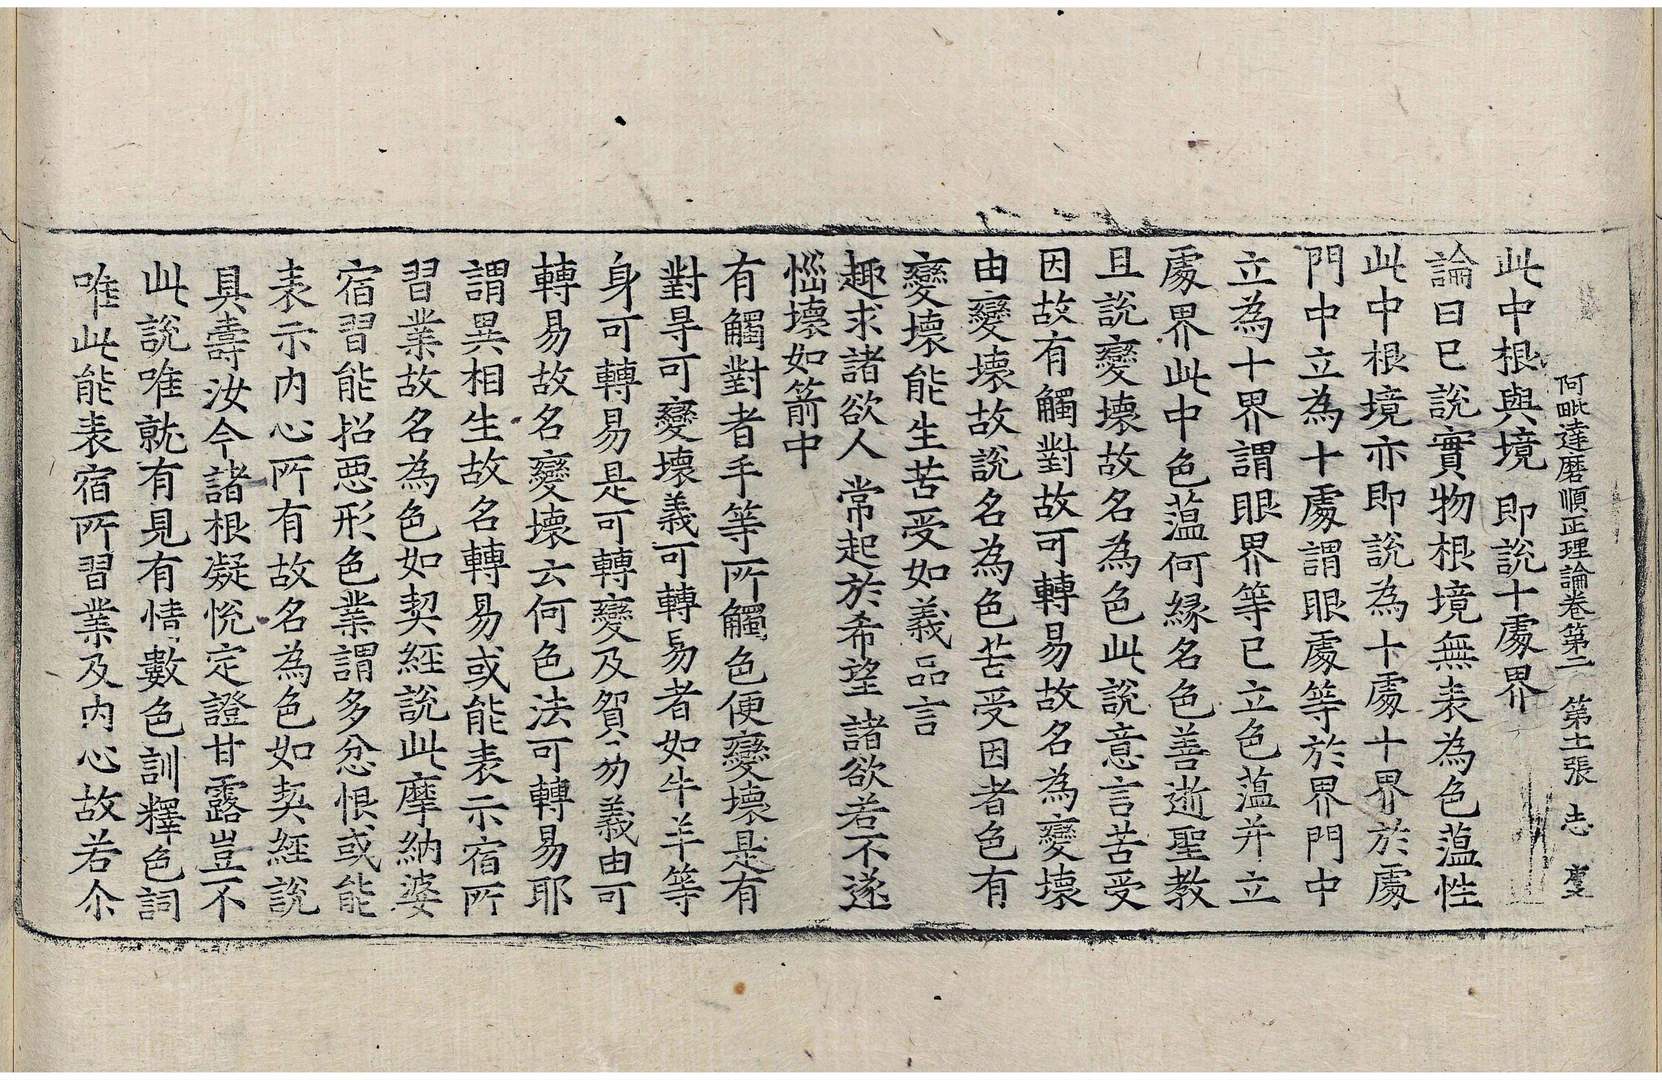 阿毗達磨順正理論卷第二 第十二張 志
此中根與境 即說十處界
論曰已說實物根境無表為色蕰性
此中根境亦即說為十處十界於處
門中立為十處謂眼處等於界門中
立為十界謂眼界等已立色蕰并立
處界此中色蕰何緣名色善逝聖教
且說變壞故名為色此說意言苦受
因故有觸對故可轉易故名為變壞
由變壞故說名為色苦受因者色有
變壞能生苦受如義品言
趣求諸欲人 常起於希望 諸欲若不遂
惱壞如箭中
有觸對者手等所觸色便變壞是有
對㝵可變壞義可轉易者如牛羊等
身可轉易是可轉變及貿易義由可
轉易故名變壞云何色法可轉易耶
謂異相生故名轉易或能表示宿所
習業故名為色如契經說此摩納婆
宿習能招惡形色業謂多忿恨或能
表示內心所有故名為色如契經說
具壽汝今諸根凝悅定證甘露豈不
此說唯就有見有情數色訓釋色詞
唯此能表宿所習業及內心故若尒